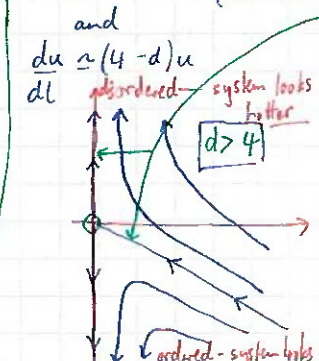 and
du ≃ (4-d)u
dl
disordered - system looks
hotter
d>4
ordered - system looks